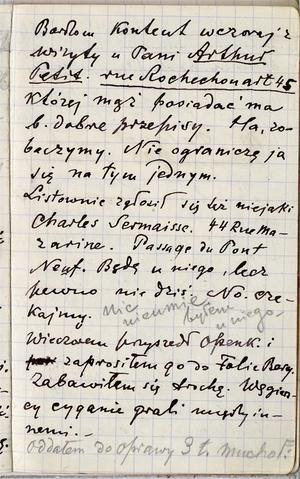 Bardzom kontent wczoraj z
wizyty u Pani Arthur
Petit. rue Rochechouart 45
której mąż posiadać ma
b. dobre przepisy. Ha, zo-
baczymy. Nie ograniczę ja
się na tym jednym.
Listownie zgłosił się też niejaki
Charles Sermaisse. 44 Rue Ma-
zarine. Passage du Pont
Neuf. Będę u niego, lecz
pewno nie dziś. No. cze-
kajmy.
Nic nie umie, byłem u niego.
Wieczorem przyszedł Openk. i
zaprosiłem go do Folie Berg.
Zabawiłem się trochę. Węgier-
scy cyganie grali między in-
nemi.
Oddałem do oprawy 3 t.